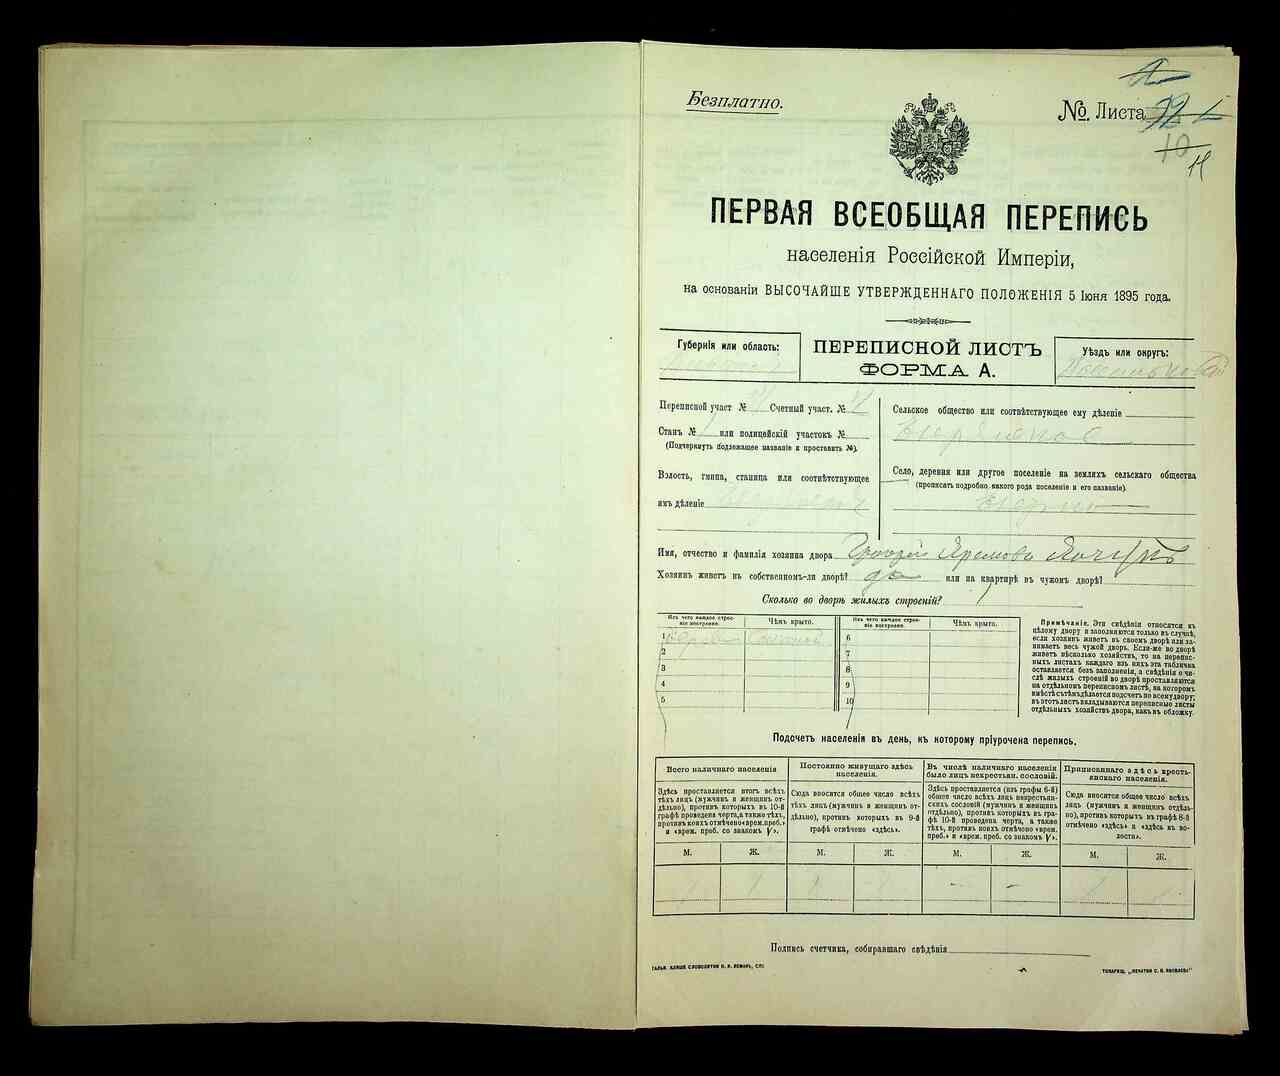 Безплатно.
№. Листа
10
11
ПЕРВАЯ ВСЕОБЩАЯ ПЕРЕПИСЬ
населенія Россійской Имперіи,
на основаніи ВЫСОЧАЙШЕ УТВЕРЖДЕННАГО ПОЛОЖЕНІЯ 5 Іюня 1895 года.
Губернія или область:
ПЕРЕПИСНОЙ ЛИСТЪ
ФОРМА А.
Уѣздъ или округъ:
Переписной участ № Счетный участ. №
Станъ № 1 или полицейскій участокъ №
(Подчеркнуть подлежащее названіе и проставить №).
Волость, гмина, станица или соотвѣтствующее
имъ дѣленіе
Сельское общество или соотвѣтствующее ему дѣленіе
Село, деревня или другое поселеніе на земляхъ сельскаго общества
(прописать подробно какого рода поселеніе и его названіе).
Имя, отчество и фамилія хозяина двора Григорій
Хозяинъ живетъ въ собственномъ-ли дворѣ? да или на квартирѣ въ чужомъ дворѣ?
Сколько во дворѣ жилыхъ строеній? 1
Изъ чего каждое строеніе построено. Чѣмъ крыто. Изъ чего каждое строеніе построено. Чѣмъ крыто.
1 Соломой 6
2 7
3 8
4 9
5 10
Примѣчанія. Эти свѣдѣнія относятся къ
цѣлому двору и заполняются только въ случаѣ,
если хозяинъ живетъ въ своемъ дворѣ или занимаетъ
весь чужой дворъ. Если-же во дворѣ
живетъ нѣсколько хозяйствъ, то на переписныхъ
листахъ каждаго изъ нихъ эта табличка
оставляется безъ заполненія, а свѣдѣнія о числѣ
жилыхъ строеній во дворѣ проставляются
на отдѣльномъ переписномъ листѣ, на которомъ
вмѣстѣ съ тѣмъ дѣлается подсчетъ по всему двору;
въ этотъ листъ вкладываются переписные листы
отдѣльныхъ хозяйствъ двора, какъ въ обложку.
Подсчетъ населенія въ день, къ которому пріурочена перепись.
Всего наличнаго населенія
Здѣсь проставляется итогъ всѣхъ
тѣхъ лицъ (мужчинъ и женщинъ отдѣльно),
противъ которыхъ въ 10-й
графѣ проведена черта, а также тѣхъ,
противъ коихъ отмѣчено «врем. преб.»
и «врем. преб. со знакомъ V».
Постоянно живущаго здѣсь
населенія.
Сюда вносится общее число всѣхъ
тѣхъ лицъ (мужчинъ и женщинъ отдѣльно),
противъ которыхъ въ 9-й
графѣ отмѣчено «здѣсь».
Въ числѣ наличнаго населенія
было лицъ некрестьян. сословій.
Здѣсь проставляется (изъ графы 6-й)
общее число всѣхъ лицъ некрестьянскихъ
сословій (мужчинъ и женщинъ
отдѣльно), противъ которыхъ въ графѣ
10-й проведена черта, а также
тѣхъ, противъ коихъ отмѣчено «врем.
преб.» и «врем. преб. со знакомъ V».
Приписаннаго здѣсь крестьянскаго
населенія.
Сюда вносится общее число всѣхъ
лицъ (мужчинъ и женщинъ отдѣльно),
противъ которыхъ въ графѣ 8-й
отмѣчено «здѣсь» и «здѣсь въ волости».
М. Ж. М. Ж. М. Ж. М. Ж.
Подпись счетчика, собиравшаго свѣдѣнія